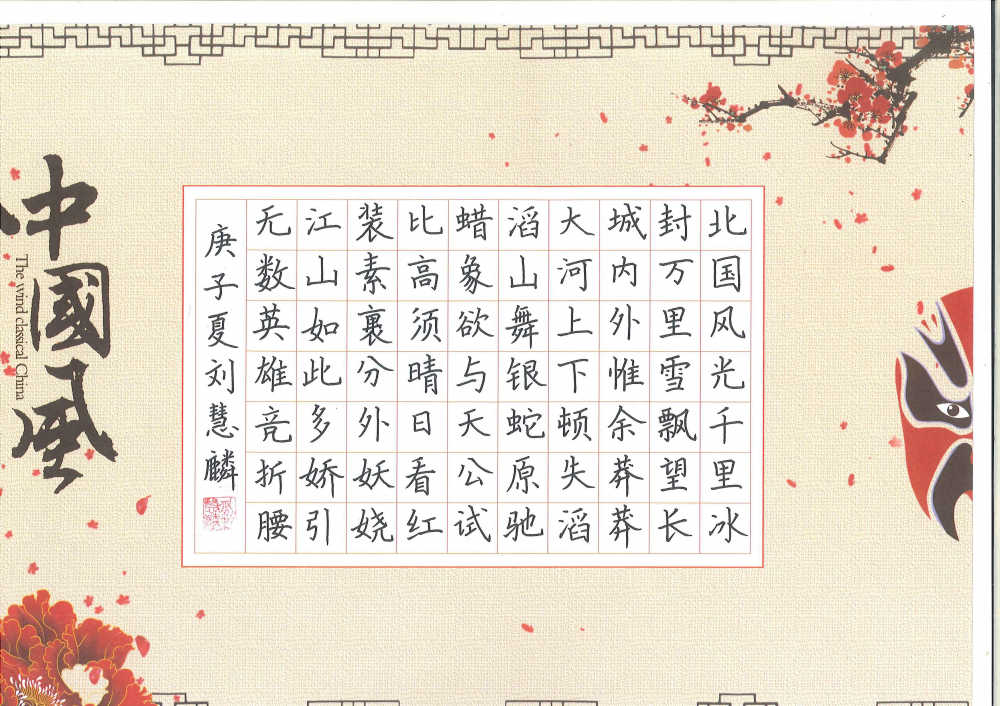 北国风光千里冰
封万里雪飘望长
城内外惟余莽莽
大河上下顿失滔
滔山舞银蛇原驰
蜡象欲与天公试
比高须晴日看红
装素裹分外妖娆
江山如此多娇引
无数英雄竞折腰
庚子夏刘慧麟
中國風
The wind classical China